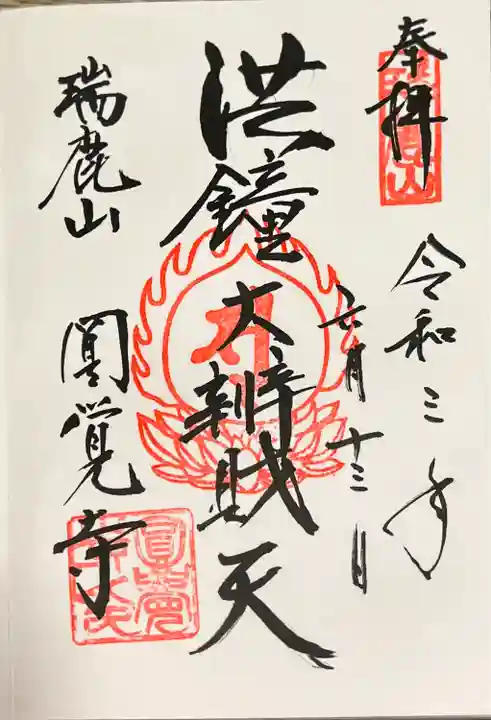 奉拝
令和三年
六月十三日
洪鐘大辨財天
瑞鹿山
圓覚寺